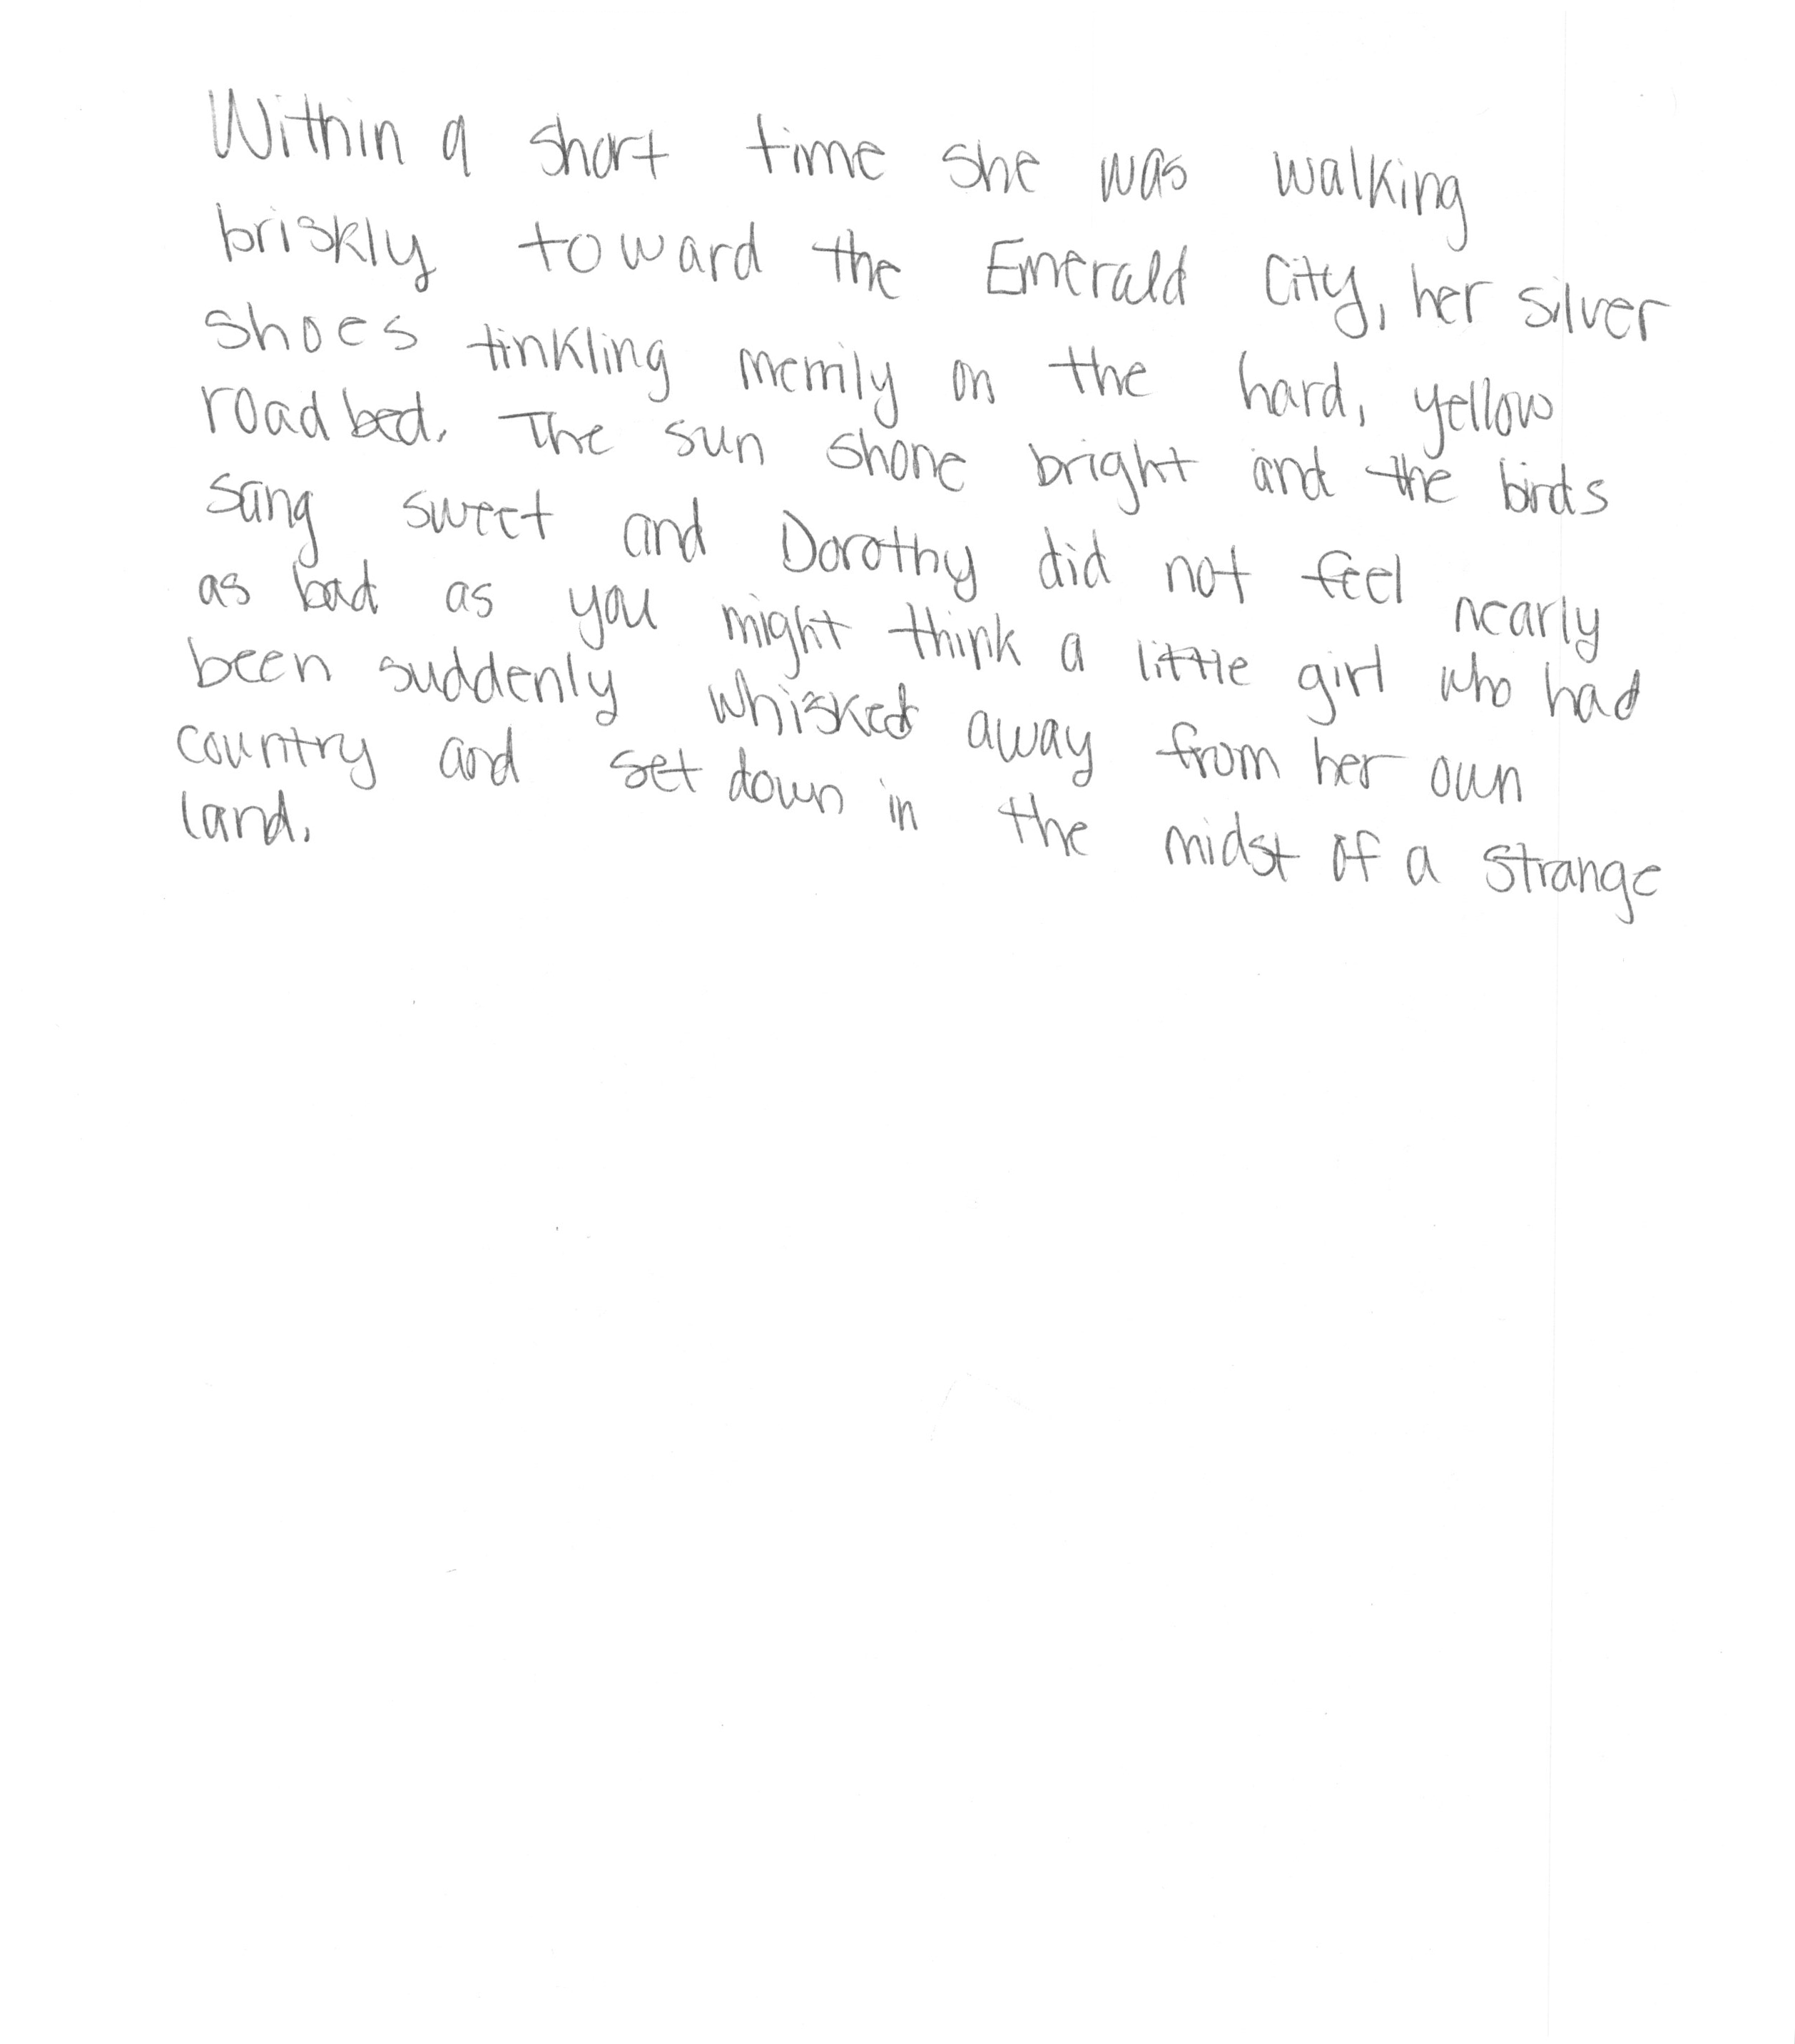 Within a short time she was walking
briskly toward the Emerald City, her silver
shoes tinkling merrily on the hard, yellow
road bed. The sun shone bright and the birds
sang sweet and Dorothy did not feel nearly
as bad as you might think a little girl who had
been suddenly whisked away from her own
country and set down in the midst of a strange
land.